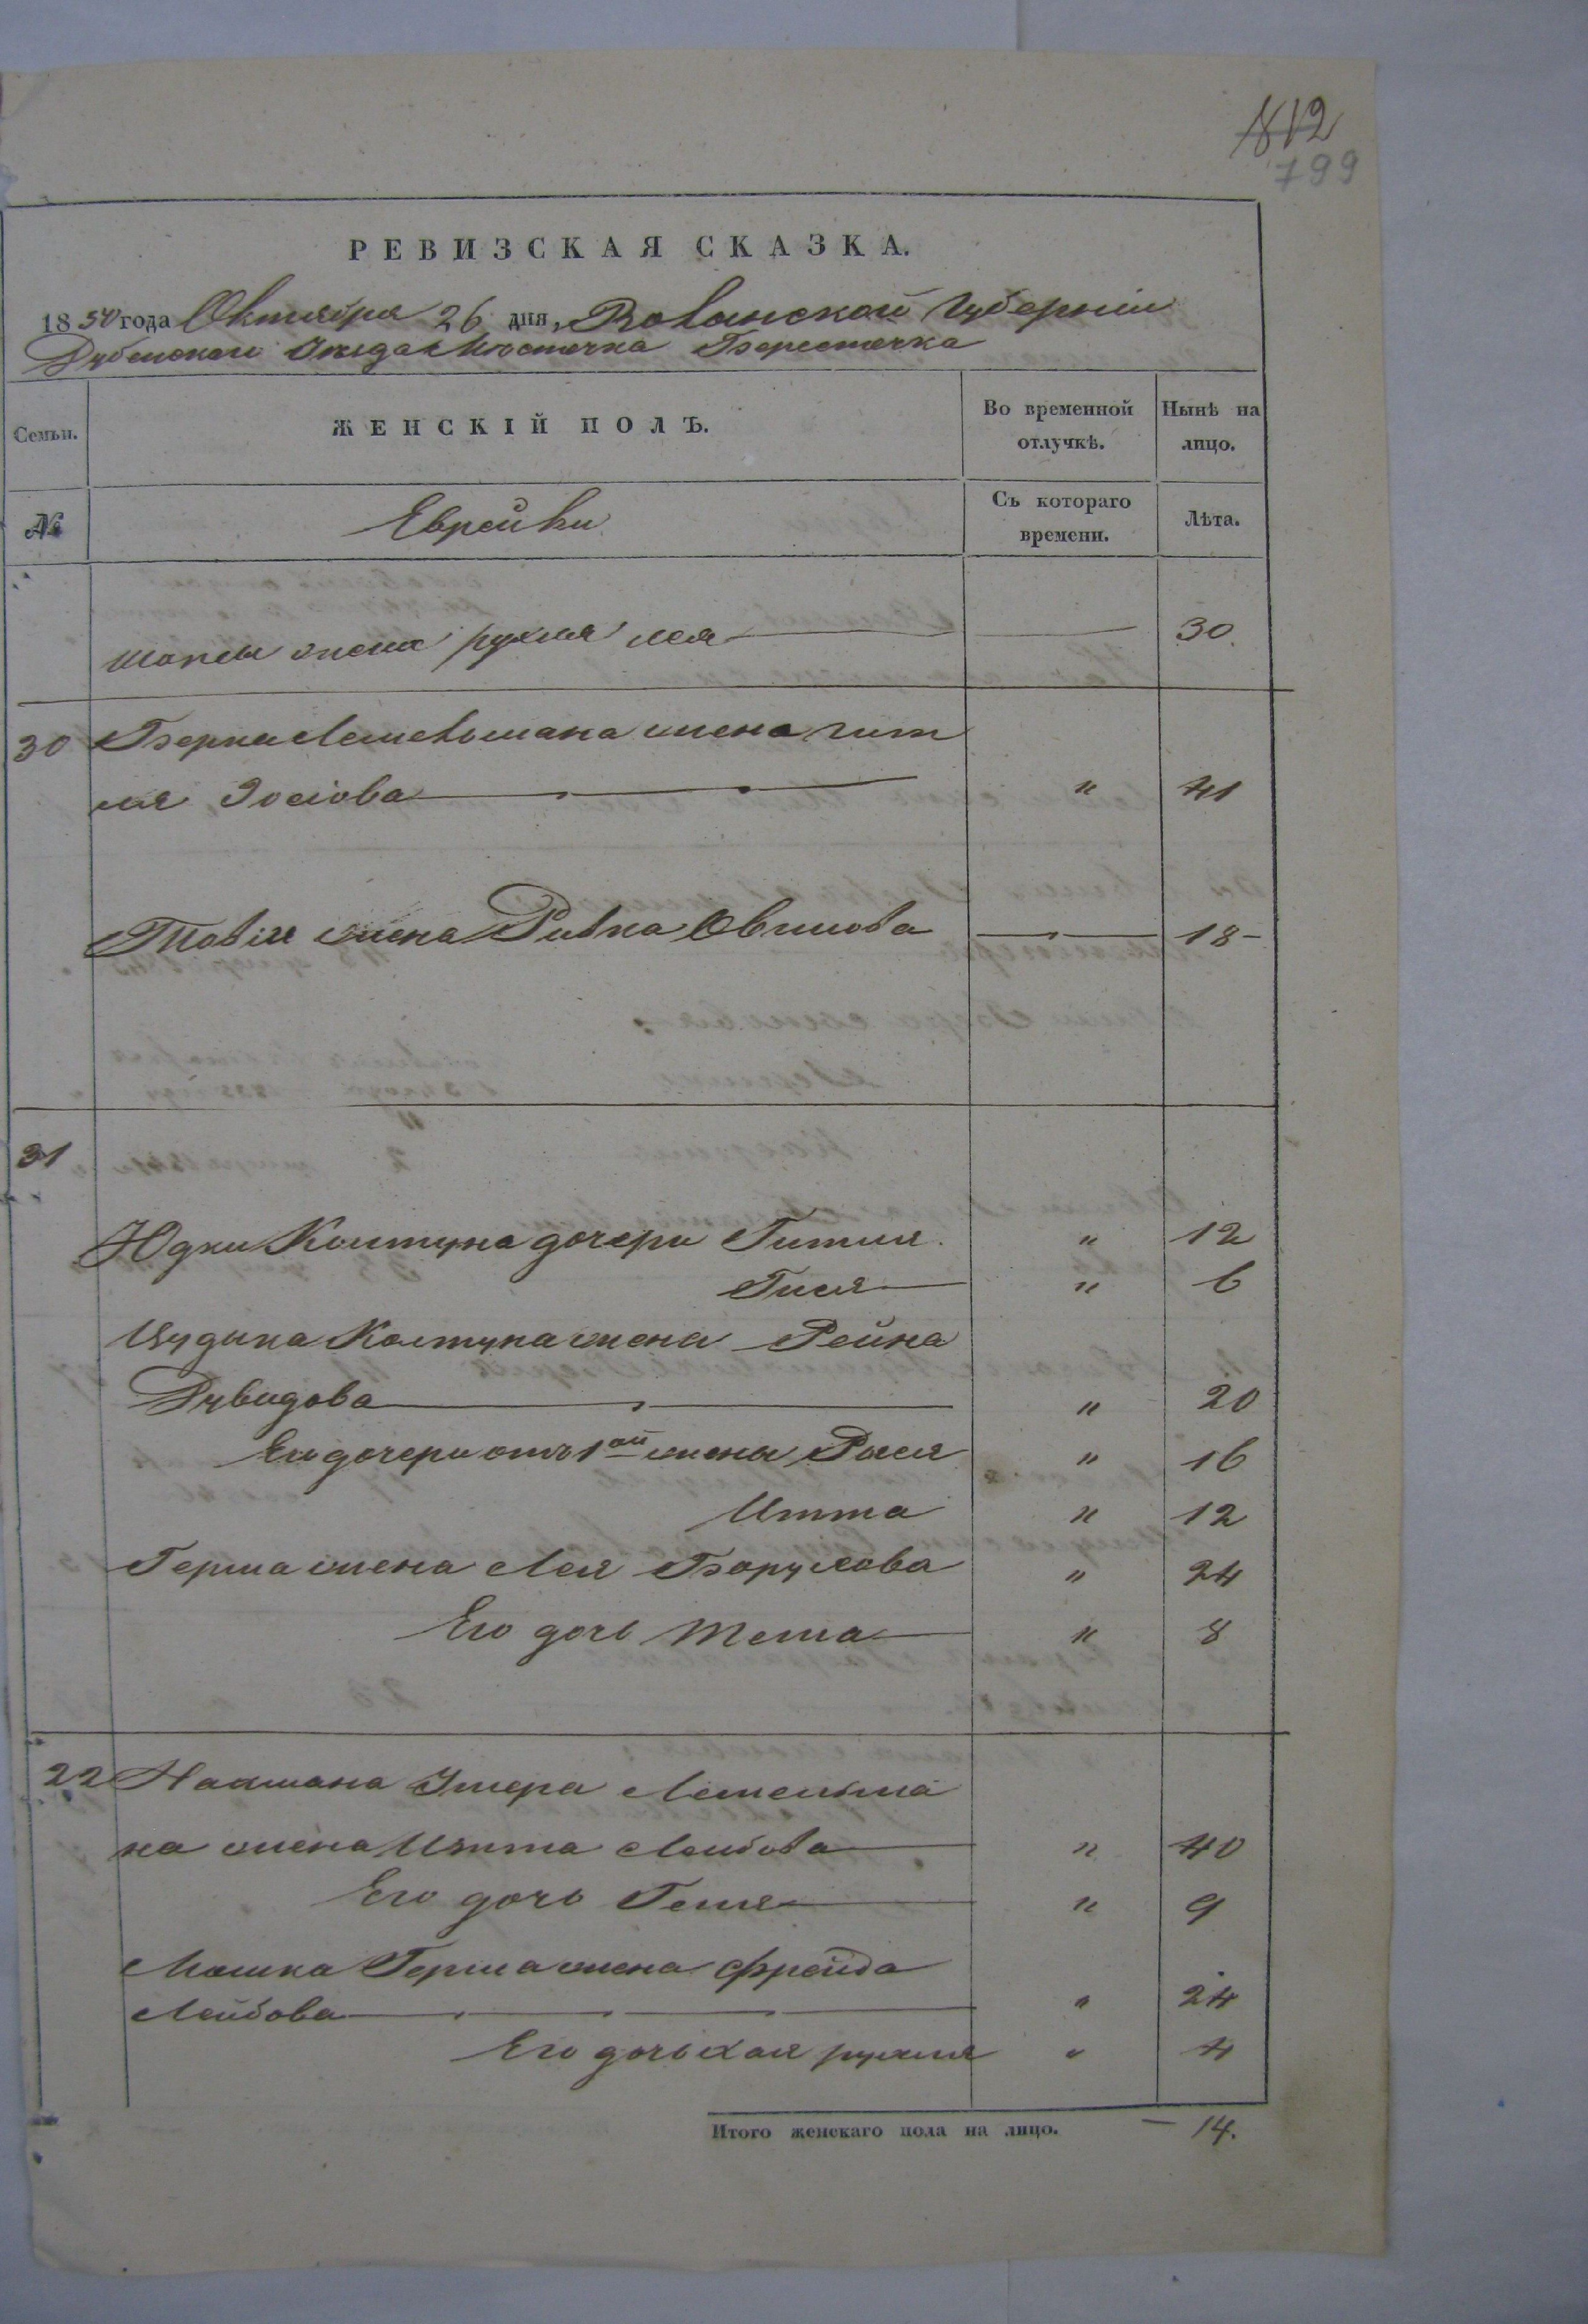 812
799
РЕВИЗСКАЯ СКАЗКА.
1850 года Октября 26 дня, Волынской Губерніи
Дубенскаго Уезда Местечка Берестечка
Семьи.
ЖЕНСКІЙ ПОЛЪ.
Во временной отлучкѣ.
Нынѣ на лицо.
№
Еврейки
Съ котораго времени.
Лѣта.
жена рухля лея 30.
30 Берка жена гит
ля Іосіова " 41
Товіи жена Ривка Овшиова 18
31
Юдки Колтуна дочери Гитля " 12
Гися " 6
Цудыка Колтуна жена Рейна
Дувидова " 20
Его дочери отъ 1ой жены Рыся " 16
Итта " 12
Герша жена Лея Борухова " 24
Его дочь Тема " 8
22 Нахмана
на жена Итта Лейбова " 40
Его дочь Геня " 9
Мошка Герша жена Фрейда
Лейбова " 24
Его дочь хая рухля " 4
Итого женскаго пола на лицо. — 14.